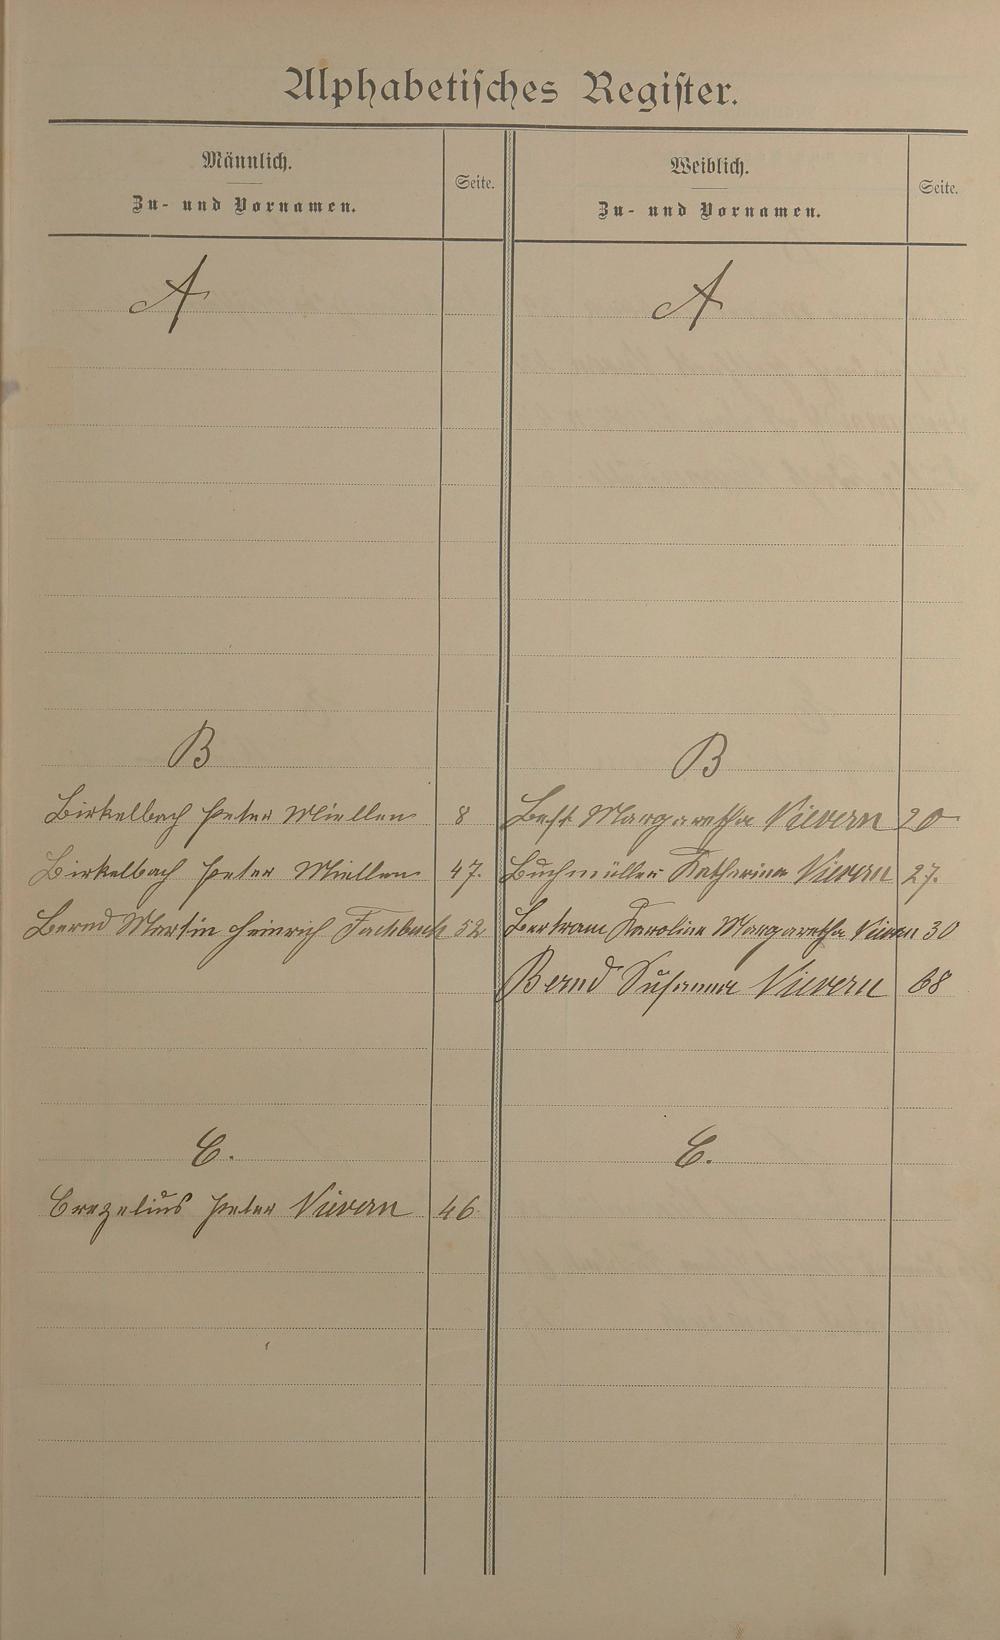 Alphabetisches Register.
Männlich.
Zu- und Vornamen.
Seite.
Weiblich.
Zu- und Vornamen.
Seite.
A
A
B
B
Birkelbach Peter Miellen 8
Best Margaretha Nievern 20
Birkelbach Peter Miellen 47.
Buchmüller Katharina Nievern 27.
Bernd Martin Heinrich Fachbach 52
Bertram Karoline Margaretha Nievern 30
Bernd Susanna Nievern 68
C.
C.
Crezelius Peter Nievern 46